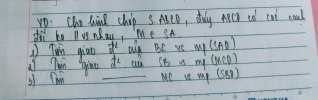 VD: Cho hình chóp S.ABCD, đáy ABCD có các cạnh
đối ko // vs nhau, M ∈ SA.
1) Tìm giao đ² của BC vs mp (SAD)
2) Tìm giao đ² của SB vs mp (MCD)
3) Tìm ——— MC vs mp (SBD)